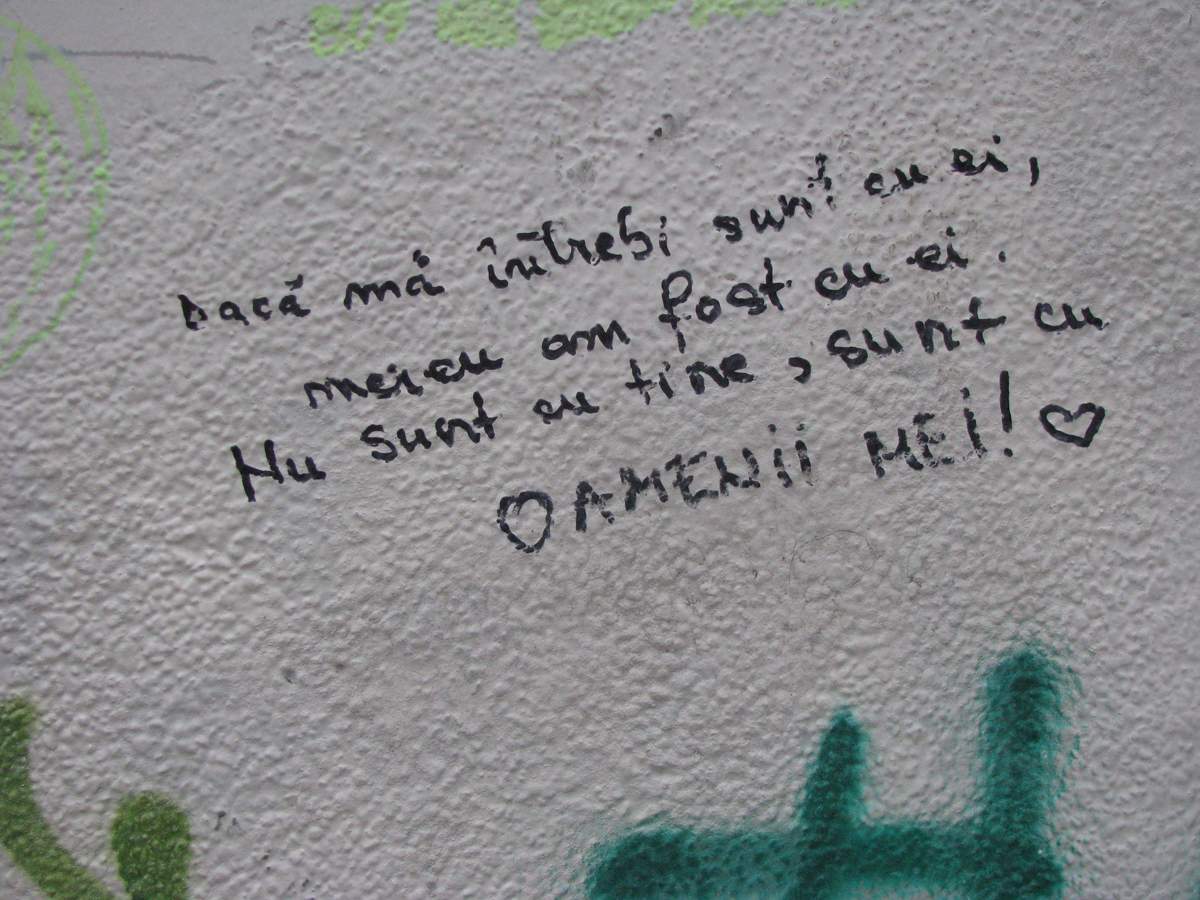 Dacă mă întrebi sunt cu ei,
mereu am fost cu ei.
Nu sunt cu tine, sunt cu
OAMENII MEI! ♡